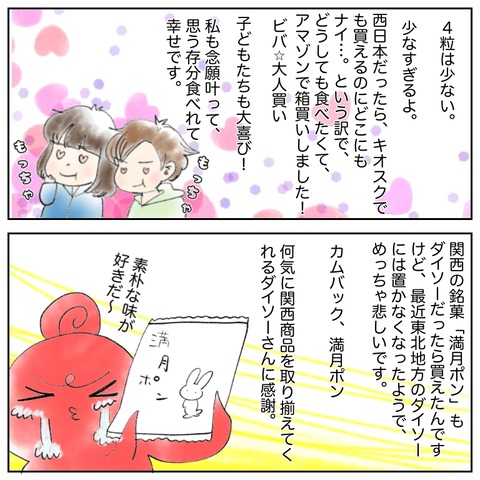 ４粒は少ない。
少なすぎるよ。
西日本だったら、キオスクで
も買えるのにどこにも
ナイ…。という訳で、
どうしても食べたくて、
アマゾンで箱買いしました！
ビバ☆大人買い
子どもたちも大喜び！
私も念願叶って、
思う存分食べれて
幸せです。
もっちゃ
もっちゃ
関西の銘菓「満月ポン」も
ダイソーだったら買えたんです
けど、最近東北地方のダイソー
には置かなくなったようで、
めっちゃ悲しいです。
カムバック、満月ポン
何気に関西商品を取り揃えてく
れるダイソーさんに感謝。
素朴な味が
好きだ〜
満月ポン